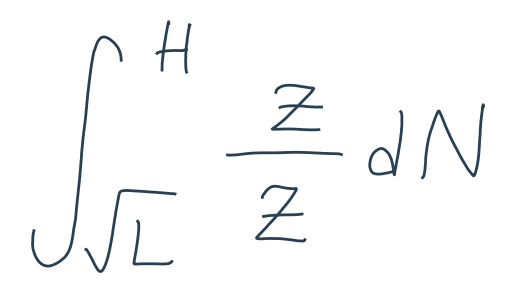 \int_{\sqrt{L}}^{H} \frac{Z}{Z} dN